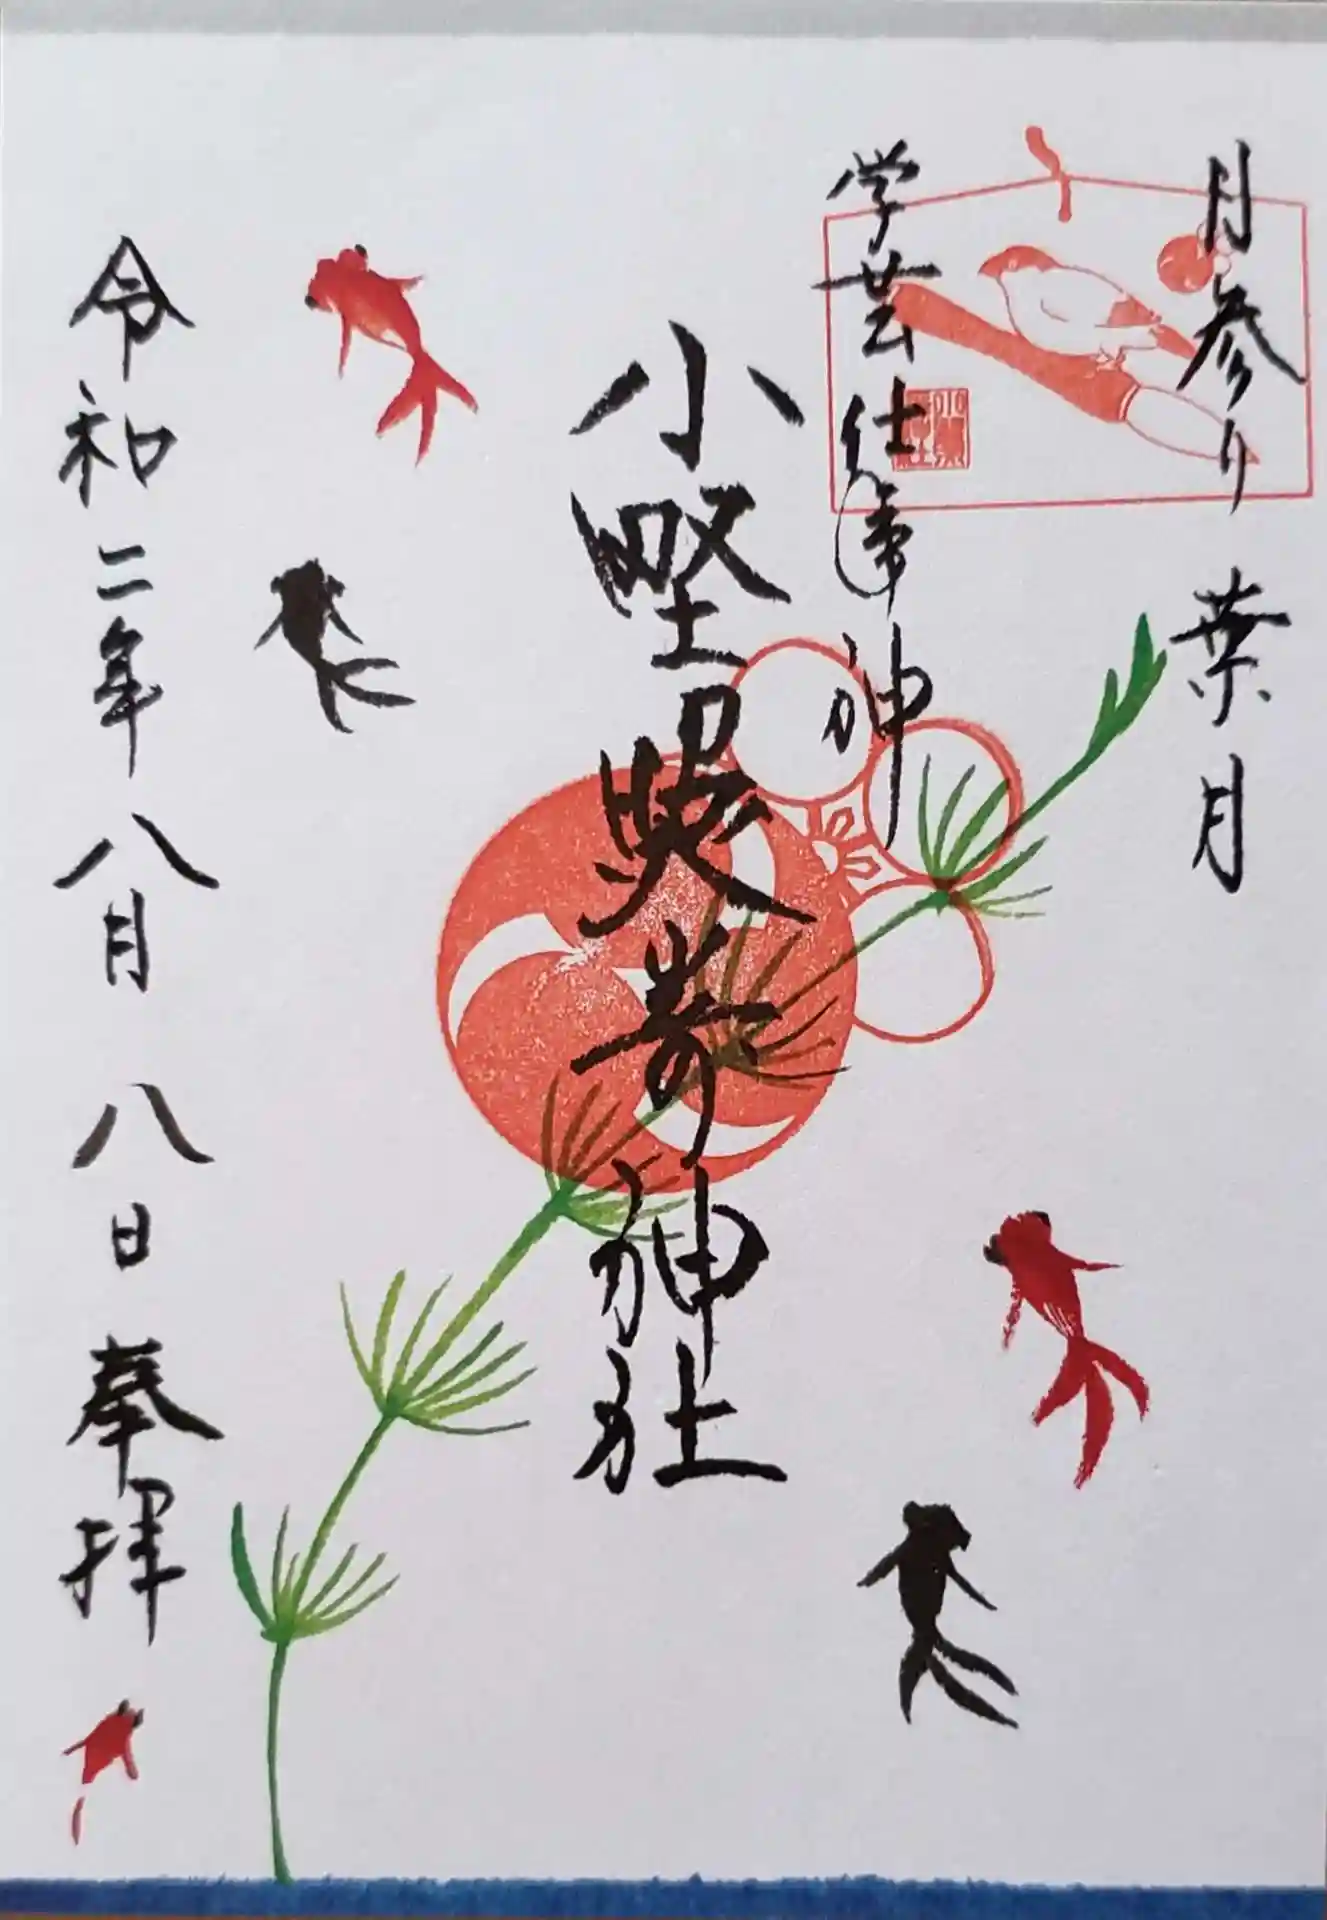 月参り 葉月
学芸仕事神
小野照崎神社
令和二年八月八日奉拝